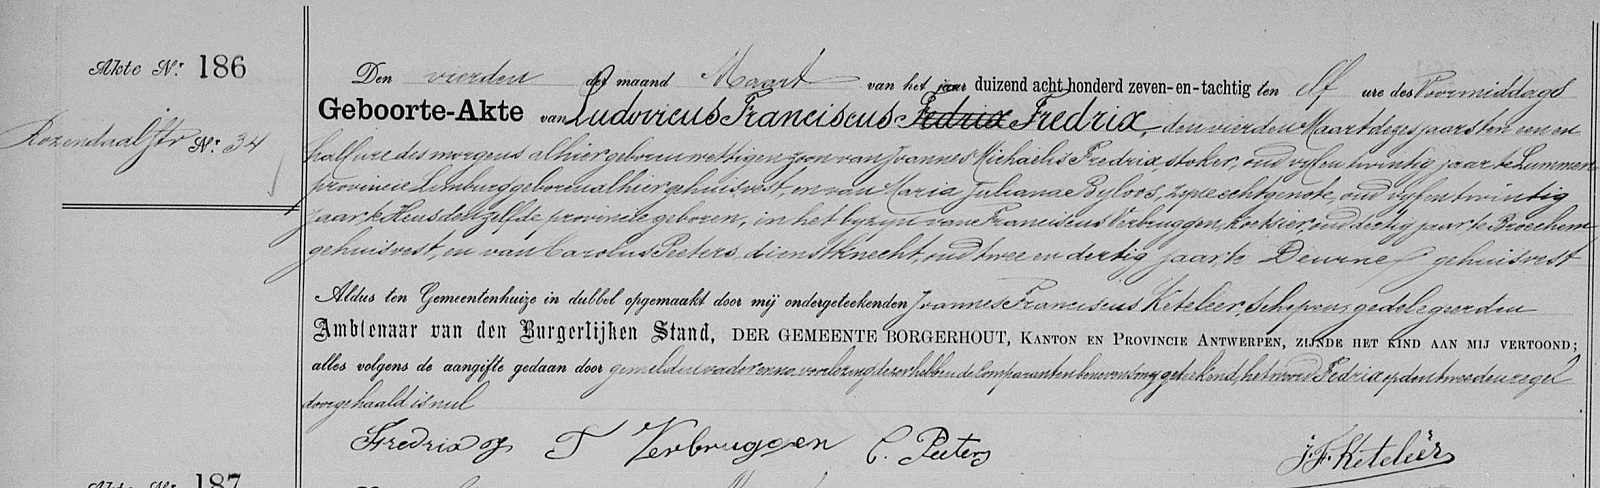 Akte Nr 186
Rozendaalstr Nr 34
Den vierden der maand Maart van het jaar duizend acht honderd zeven-en-tachtig ten elf ure des Voormiddags
Geboorte-Akte van Ludovicus Franciscus Fedrix Fredrix, den vierden Maart dezes jaars ten een en
half ure des morgens alhier geboren wettigen zoon van Joannes Michaelis Fredrix, stoker, oud vyf en twintig jaar te Lummen
provincie Limburg geboren alhier gehuisvest, en van Maria Julianae Byloos, zyne echtgenote, oud vyf en twintig
jaar te Heusden zelfde provincie geboren, in het byzyn van Franciscus Verbruggen, koetsier, oud dertig jaar te Broechem
gehuisvest, en van Carolus Peeters, dienstknecht, oud twee en dertig jaar te Deurne gehuisvest
Aldus ten Gemeentenhuize in dubbel opgemaakt door mij ondergeteekenden Joannes Franciscus Keteleer, Schepen, gedelegeerden
Ambtenaar van den Burgerlijken Stand, DER GEMEENTE BORGERHOUT, KANTON EN PROVINCIE ANTWERPEN, ZIJNDE HET KIND AAN MIJ VERTOOND;
alles volgens de aangifte gedaan door gemelden vader en na voorlezing dezer hebben de Comparanten benevens my geteekend, het woord Fedrix op den tweeden regel
doorgehaald is nul
Fredrix F Verbruggen C. Peeters J.F. Keteleer
Akte Nr 187